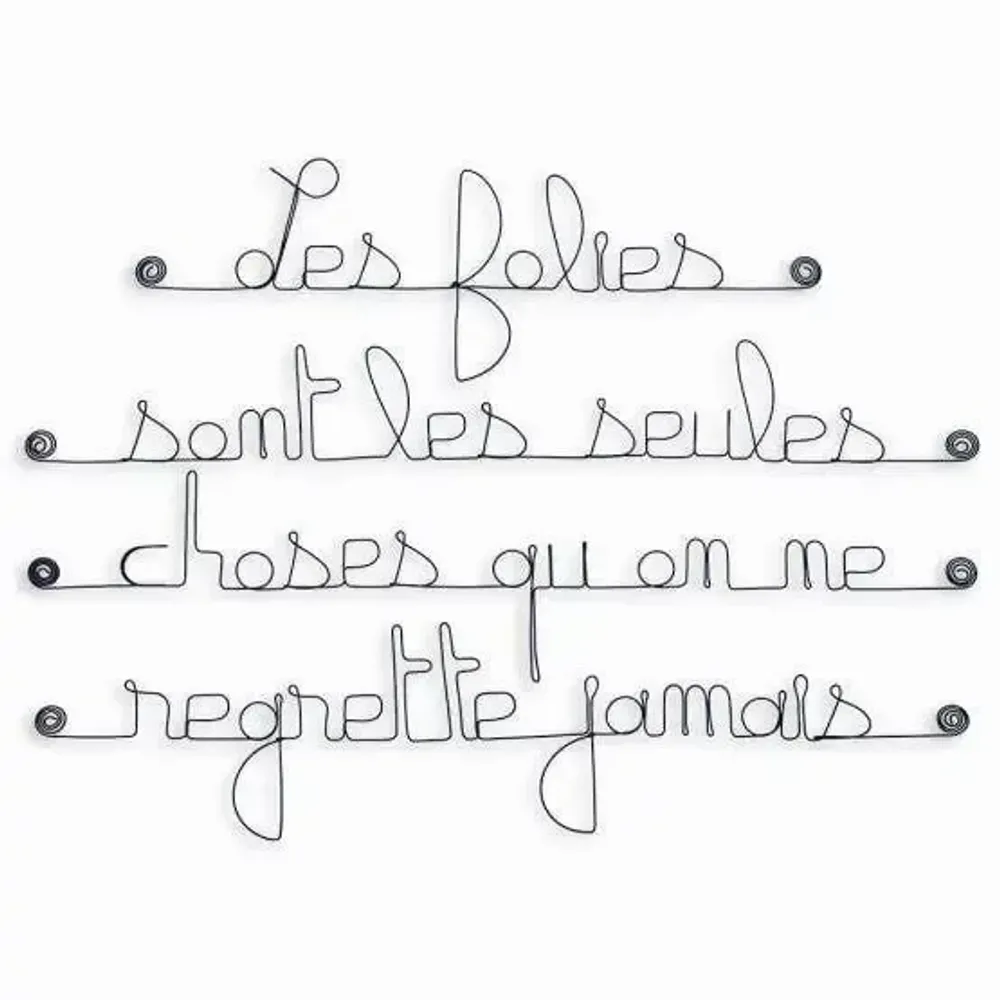 Les folies
sont les seules
choses qu on ne
regrette jamais